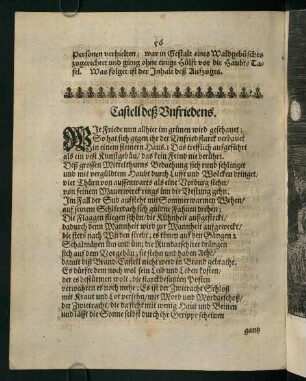 56
Personen verhielten / war in Gestalt eines Waldgebüsches
zugerichtet und gieng ohne einige Hülff vor die Haubt-Ta-
fel. Was folget ist der Inhalt deß Auffzuges.
Castell deß Vnfriedens.
WIe Fried nun allhier im grünen wird geschauet;
So hat sich gegen ihr der Unfried starck verbauet
in einem steinern Haus. Das trefflich ausgeführt
als ein vest Kunstgebäu / das kein Feind nie berührt.
Deß grossen Mittelthurns Bedachung sich rund schlinget
und mit vergüldtem Haubt durch Lufft und Wolcken dringet /
vier Thürn von aussenwarts als eine Vorburg stehn /
von feinem Maurwerck rings üm die Vestung gehn.
Im Fall der Sud auffsteht mit Sommerwarmen Wehen /
auf jenem Schiferdach sich güldne Fahnen drehen:
Die Flaggen fliegen schön / die Kühnheit aufgesteckt /
dadurch denn Mannheit wird zur Mannheit aufgeweckt /
die stets nach Würden strebt; es tönen auf den Gängen
Schalmäyen üm und üm; die Kundaffschter drängen
sich auf dem Vorgebäu / sie stehn und haben Acht /
damit diß Brand-Castell nicht werd in Brand gebracht.
Es dürfft dem noch wol sein Leib und Leben kosten /
der es bestürmen wolt / die starckbesatzten Posten
verwahren es noch mehr: Es ist der Zwietracht Schloß
mit Kraut und Lot versehn / mit Mord und Mordgeschoß /
der Zwietracht / die da sicht mit wenig Haut und Beinen
und läßt die Sonne selbst durch ihr Gerippe scheinen
gantz